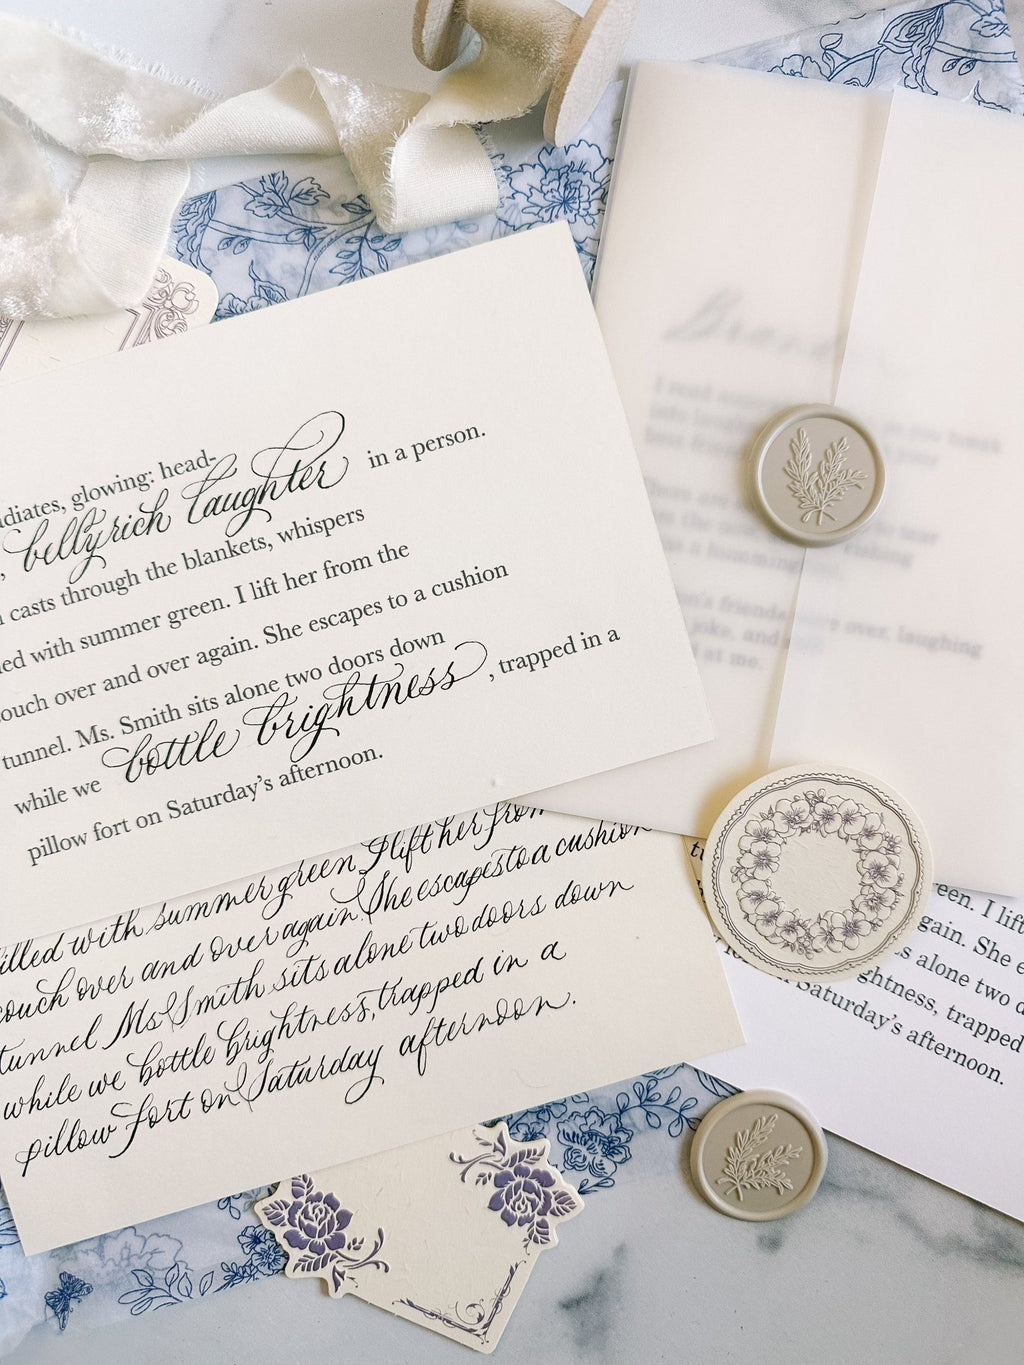 diates, glowing: head-
, bellyrich laughter in a person.
casts through the blankets, whispers
ed with summer green. I lift her from the
ouch over and over again. She escapes to a cushion
tunnel. Ms. Smith sits alone two doors down
while we bottle brightness, trapped in a
pillow fort on Saturday's afternoon.
illed with summer green I lift her from
couch over and over again She escapes to a cushion
tunnel Ms Smith sits alone two doors down
while we bottle brightness, trapped in a
pillow fort on Saturday afternoon.
I read
you break
into
your
best
There are
to tear
fishing
's friends over, laughing
joke, and
at me.
een. I lift
gain. She e
s alone two d
ghtness, trapped
Saturday's afternoon.